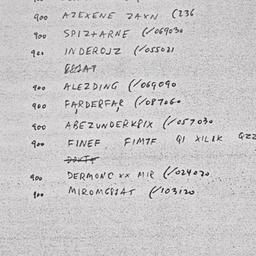 900 AZEXENE ZAXN (236
900 SPIZ+ARNE (/069030
900 INDEROJZ (/055021
900 ALEZDING (/069090
900 FARDERFAR (/087060
900 ABEZUNDERKPIX (/057030
900 FINEF FIMTF QI XILEK QZZ
900 DERMONC XX MIR (/024020
900 MIROMG81AT (/103120